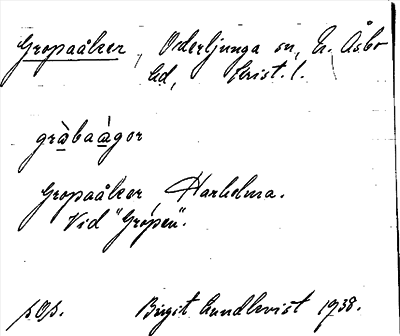 Gropaåker, Örkelljunga sn, N. Åsbo
hd, Krist. l.
gràbaàgor
Gropaåker, Harholma.
Vid "Gropen".
pOp. Birgit Lundkvist 1938.